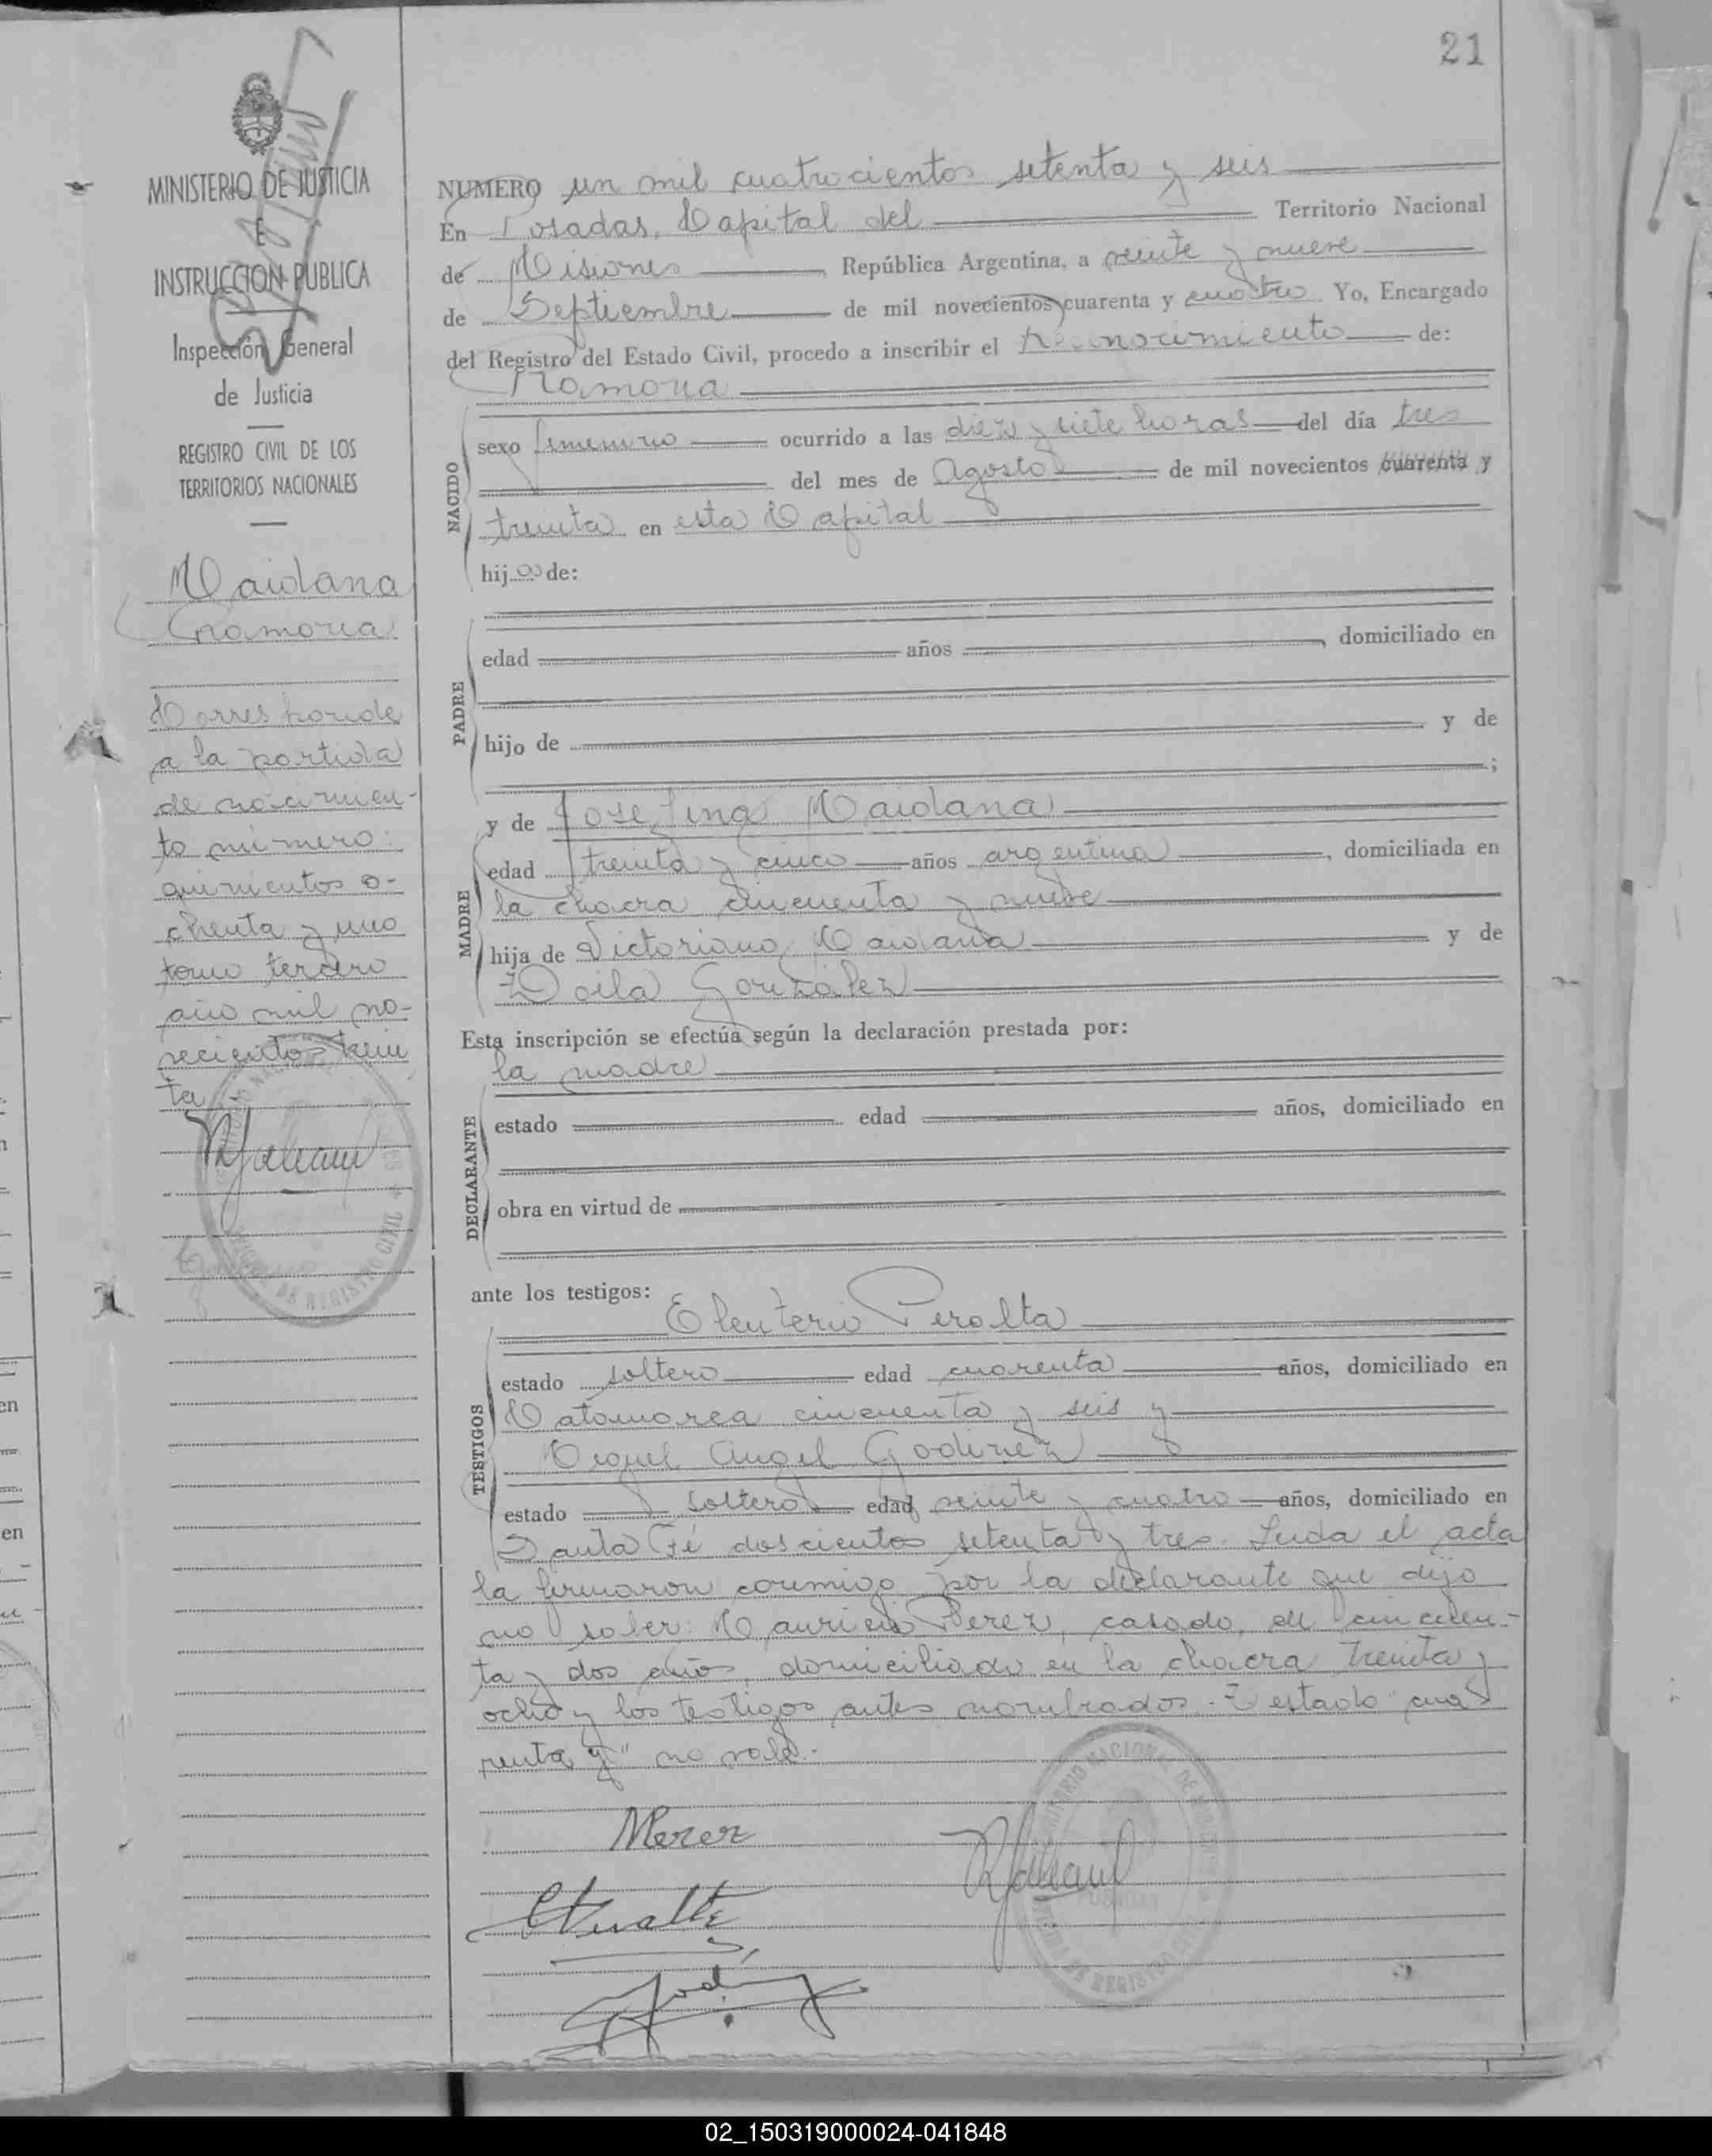 21
MINISTERIO DE JUSTICIA
E
INSTRUCCION PUBLICA
Inspección General
de Justicia
REGISTRO CIVIL DE LOS
TERRITORIOS NACIONALES
Maidana
Ramona
Corresponde
a la partida
de nacimien-
to número:
quinientos o-
chenta y uno
tomo tercero
año mil no-
vecientos trein
ta
NUMERO un mil cuatrocientos setenta y seis
En Posadas, Capital del Territorio Nacional
de Misiones República Argentina, a veinte y nueve
de Septiembre de mil novecientos cuarenta y cuatro. Yo, Encargado
del Registro del Estado Civil, procedo a inscribir el reconocimiento de:
Ramona
NACIDO
sexo femenino ocurrido a las diez y siete horas del día tres
del mes de Agosto de mil novecientos cuarenta y
treinta en esta Capital
hija de:
PADRE
edad años , domiciliado en
hijo de y de
;
MADRE
y de Josefina Maidana
edad treinta y cinco años argentina , domiciliada en
la chacra cincuenta y nueve
hija de Victoriano Maidana y de
Zoila González
Esta inscripción se efectúa según la declaración prestada por:
la madre
DECLARANTE
estado edad años, domiciliado en
obra en virtud de
ante los testigos:
TESTIGOS
Eleuterio Peralta
estado soltero edad cuarenta años, domiciliado en
Catamarca cincuenta y seis y
Miguel Angel Godinez
estado soltero edad veinte y cuatro años, domiciliado en
Santa Fé doscientos setenta y tres. Leida el acta
la firmaron conmigo por la declarante que dijo
no saber: Mauricio Perez, casado, de cincuen-
ta y dos años, domiciliado en la chacra treinta y
ocho y los testigos antes nombrados.- Testado "cua
renta y" no vale.-
MPerez
EPeralta
02_150319000024-041848